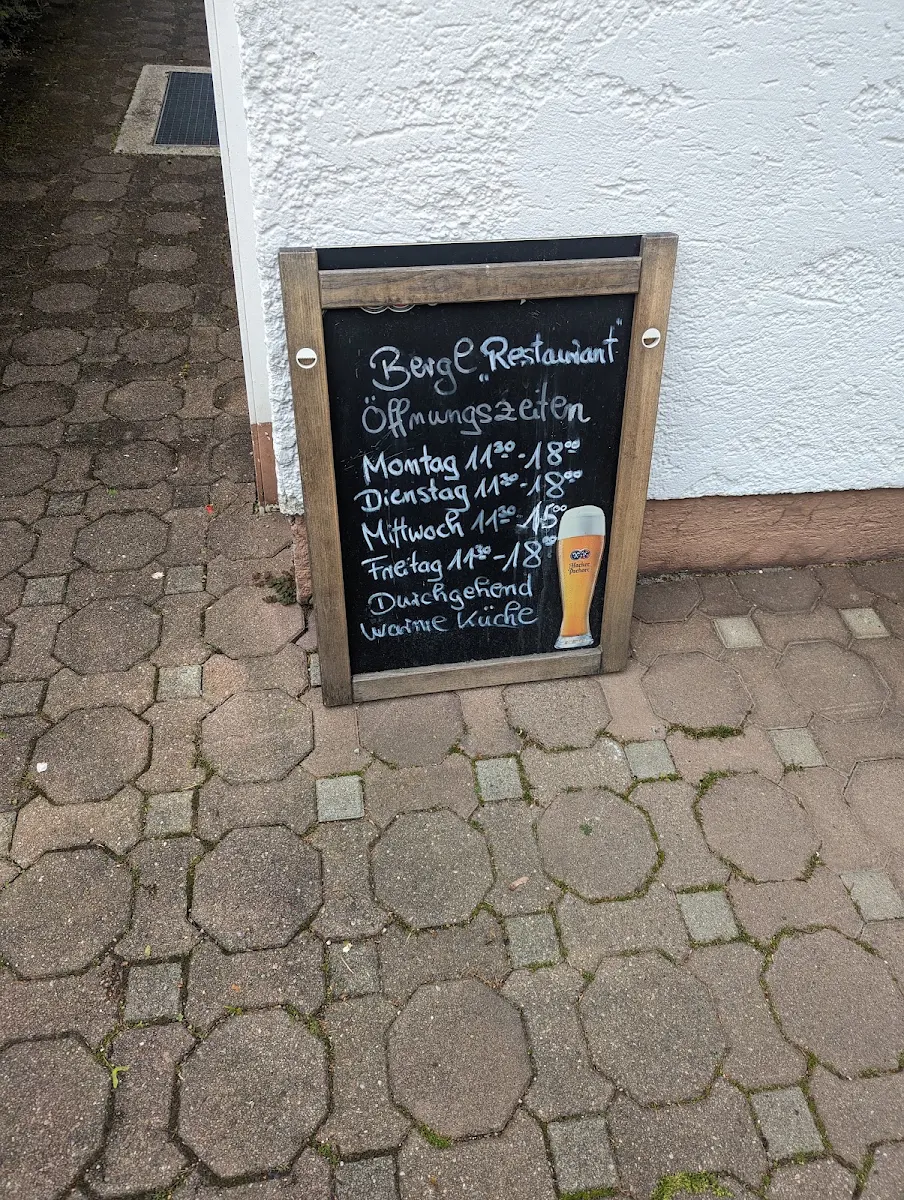 Bergl „Restaurant"
Öffnungszeiten
Montag 11³⁰-18⁰⁰
Dienstag 11³⁰-18⁰⁰
Mittwoch 11³⁰-15⁰⁰
Freitag 11³⁰-18⁰⁰
Durchgehend
warme Küche
Hacker
Pschorr